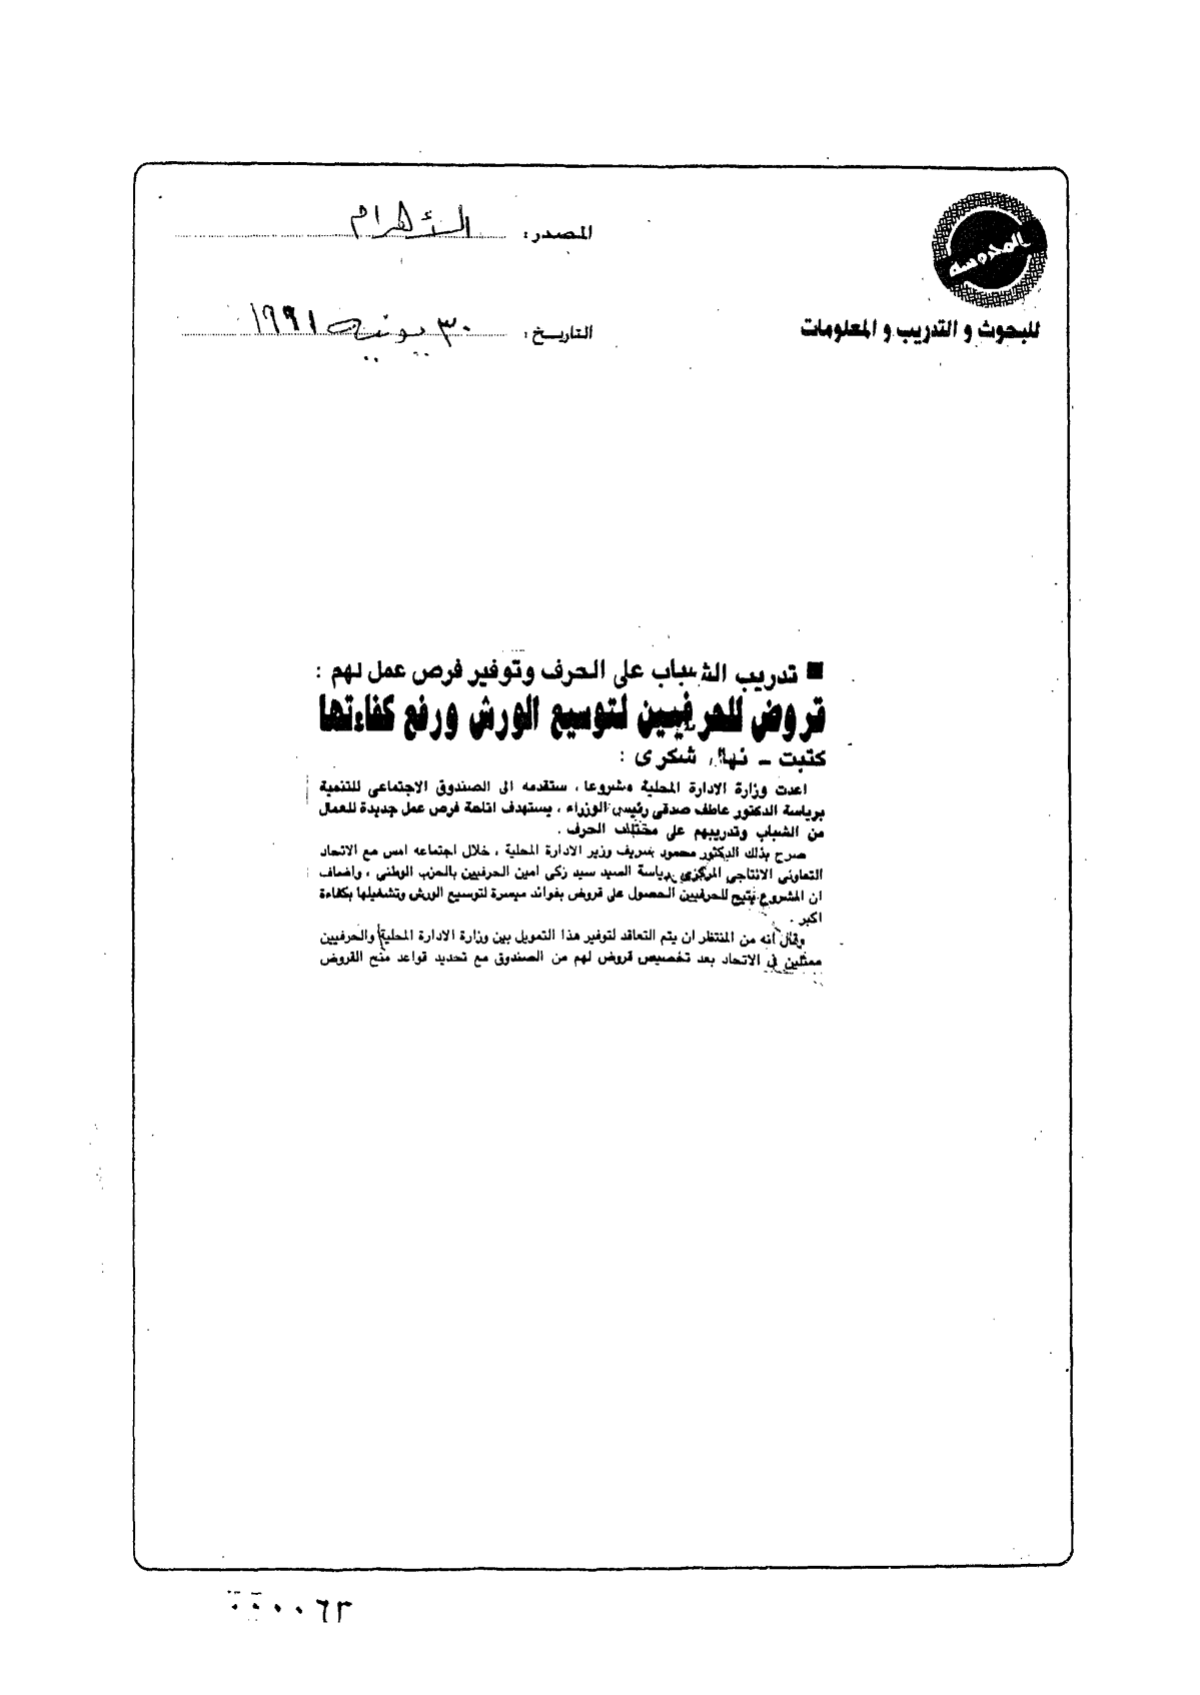 المحروسة
للبحوث و التدريب و المعلومات
المصدر: الأهرام
التاريخ: ٣٠ يونيه ١٩٩١
■ تدريب الشباب على الحرف وتوفير فرص عمل لهم :
قروض للحرفيين لتوسيع الورش ورفع كفاءتها
كتبت ـ نهال شكرى :
اعدت وزارة الادارة المحلية مشروعا ، ستقدمه الى الصندوق الاجتماعى للتنمية
برياسة الدكتور عاطف صدقى رئيس الوزراء ، يستهدف اتاحة فرص عمل جديدة للعمال
من الشباب وتدريبهم على مختلف الحرف .
صرح بذلك الدكتور محمود شريف وزير الادارة المحلية ، خلال اجتماعه امس مع الاتحاد
التعاونى الانتاجى المركزى برياسة السيد سيد زكى امين الحرفيين بالحزب الوطنى ، واضاف
ان المشروع يتيح للحرفيين الحصول على قروض بفوائد ميسرة لتوسيع الورش وتشغيلها بكفاءة
اكبر .
وقال انه من المنتظر ان يتم التعاقد لتوفير هذا التمويل بين وزارة الادارة المحلية والحرفيين
ممثلين فى الاتحاد بعد تخصيص قروض لهم من الصندوق مع تحديد قواعد منح القروض